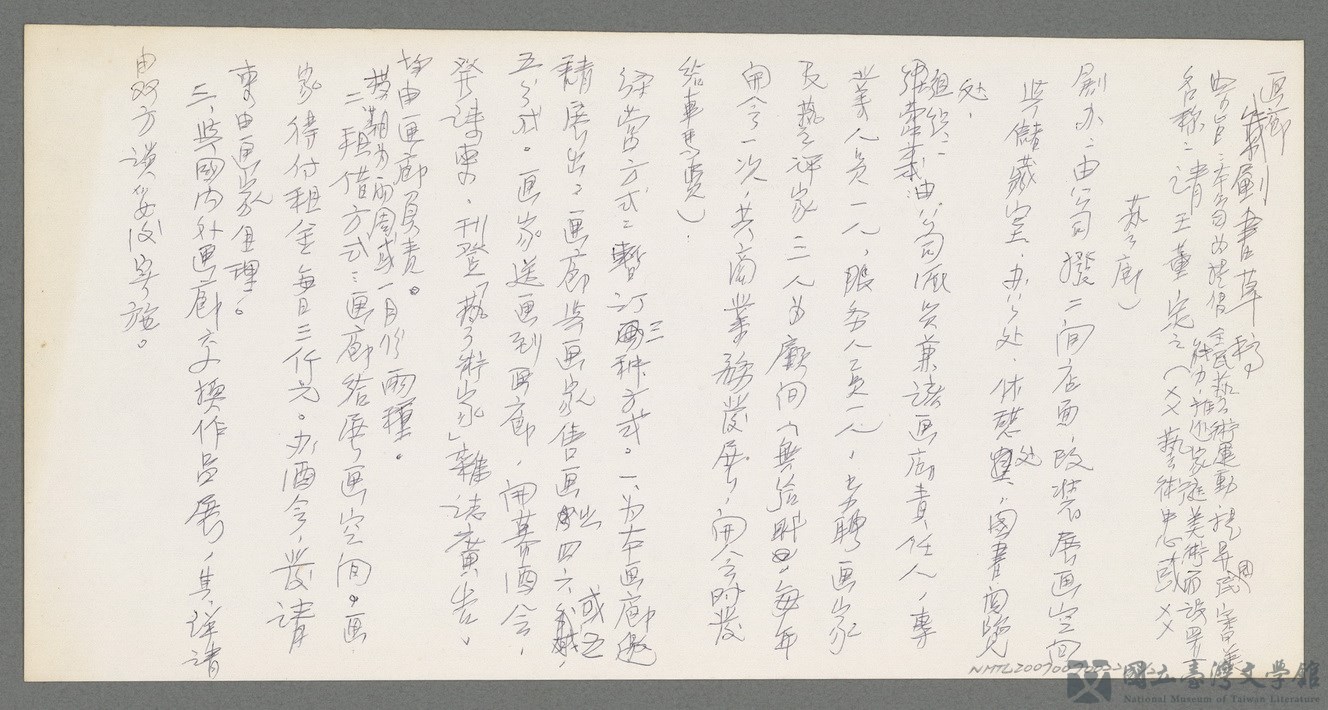 画廊
企劃書草稿
宗旨：本公司為提倡全民藝術運動，提昇國民審美
能力，推進家庭美術而設置
名称：請王董定之（××藝術中心或××
藝廊）
創办：由公司撥二間店面，改裝展画空間
與儲藏室、办公处、休憩处、圖書閱覽
处，
組織：由公司派員兼該画廊責任人，專
業人員一人，賬務人員一人，另聘画家
及藝評家三人為顧問（無給職，每年
開会一次，共商業務發展，開会時發
給車馬費）．
經營方式：暫訂三种方式。一、为本画廊邀
請展出：画廊與画家售画出四六或五
五分成。画家送画到画廊，開幕酒会，
發請柬、刊登「藝術家」雜誌廣告、
均由画廊負責。
展期为兩周或一月份兩種。
二、租借方式：画廊給展画空间。画
家得付租金每日三仟元。办酒会，發請
柬由画家自理。
三、與國内外画廊交換作品展，其詳請
由双方談妥後实施。
NMTL2009007
國立臺灣文學館
National Museum of Taiwan Literature